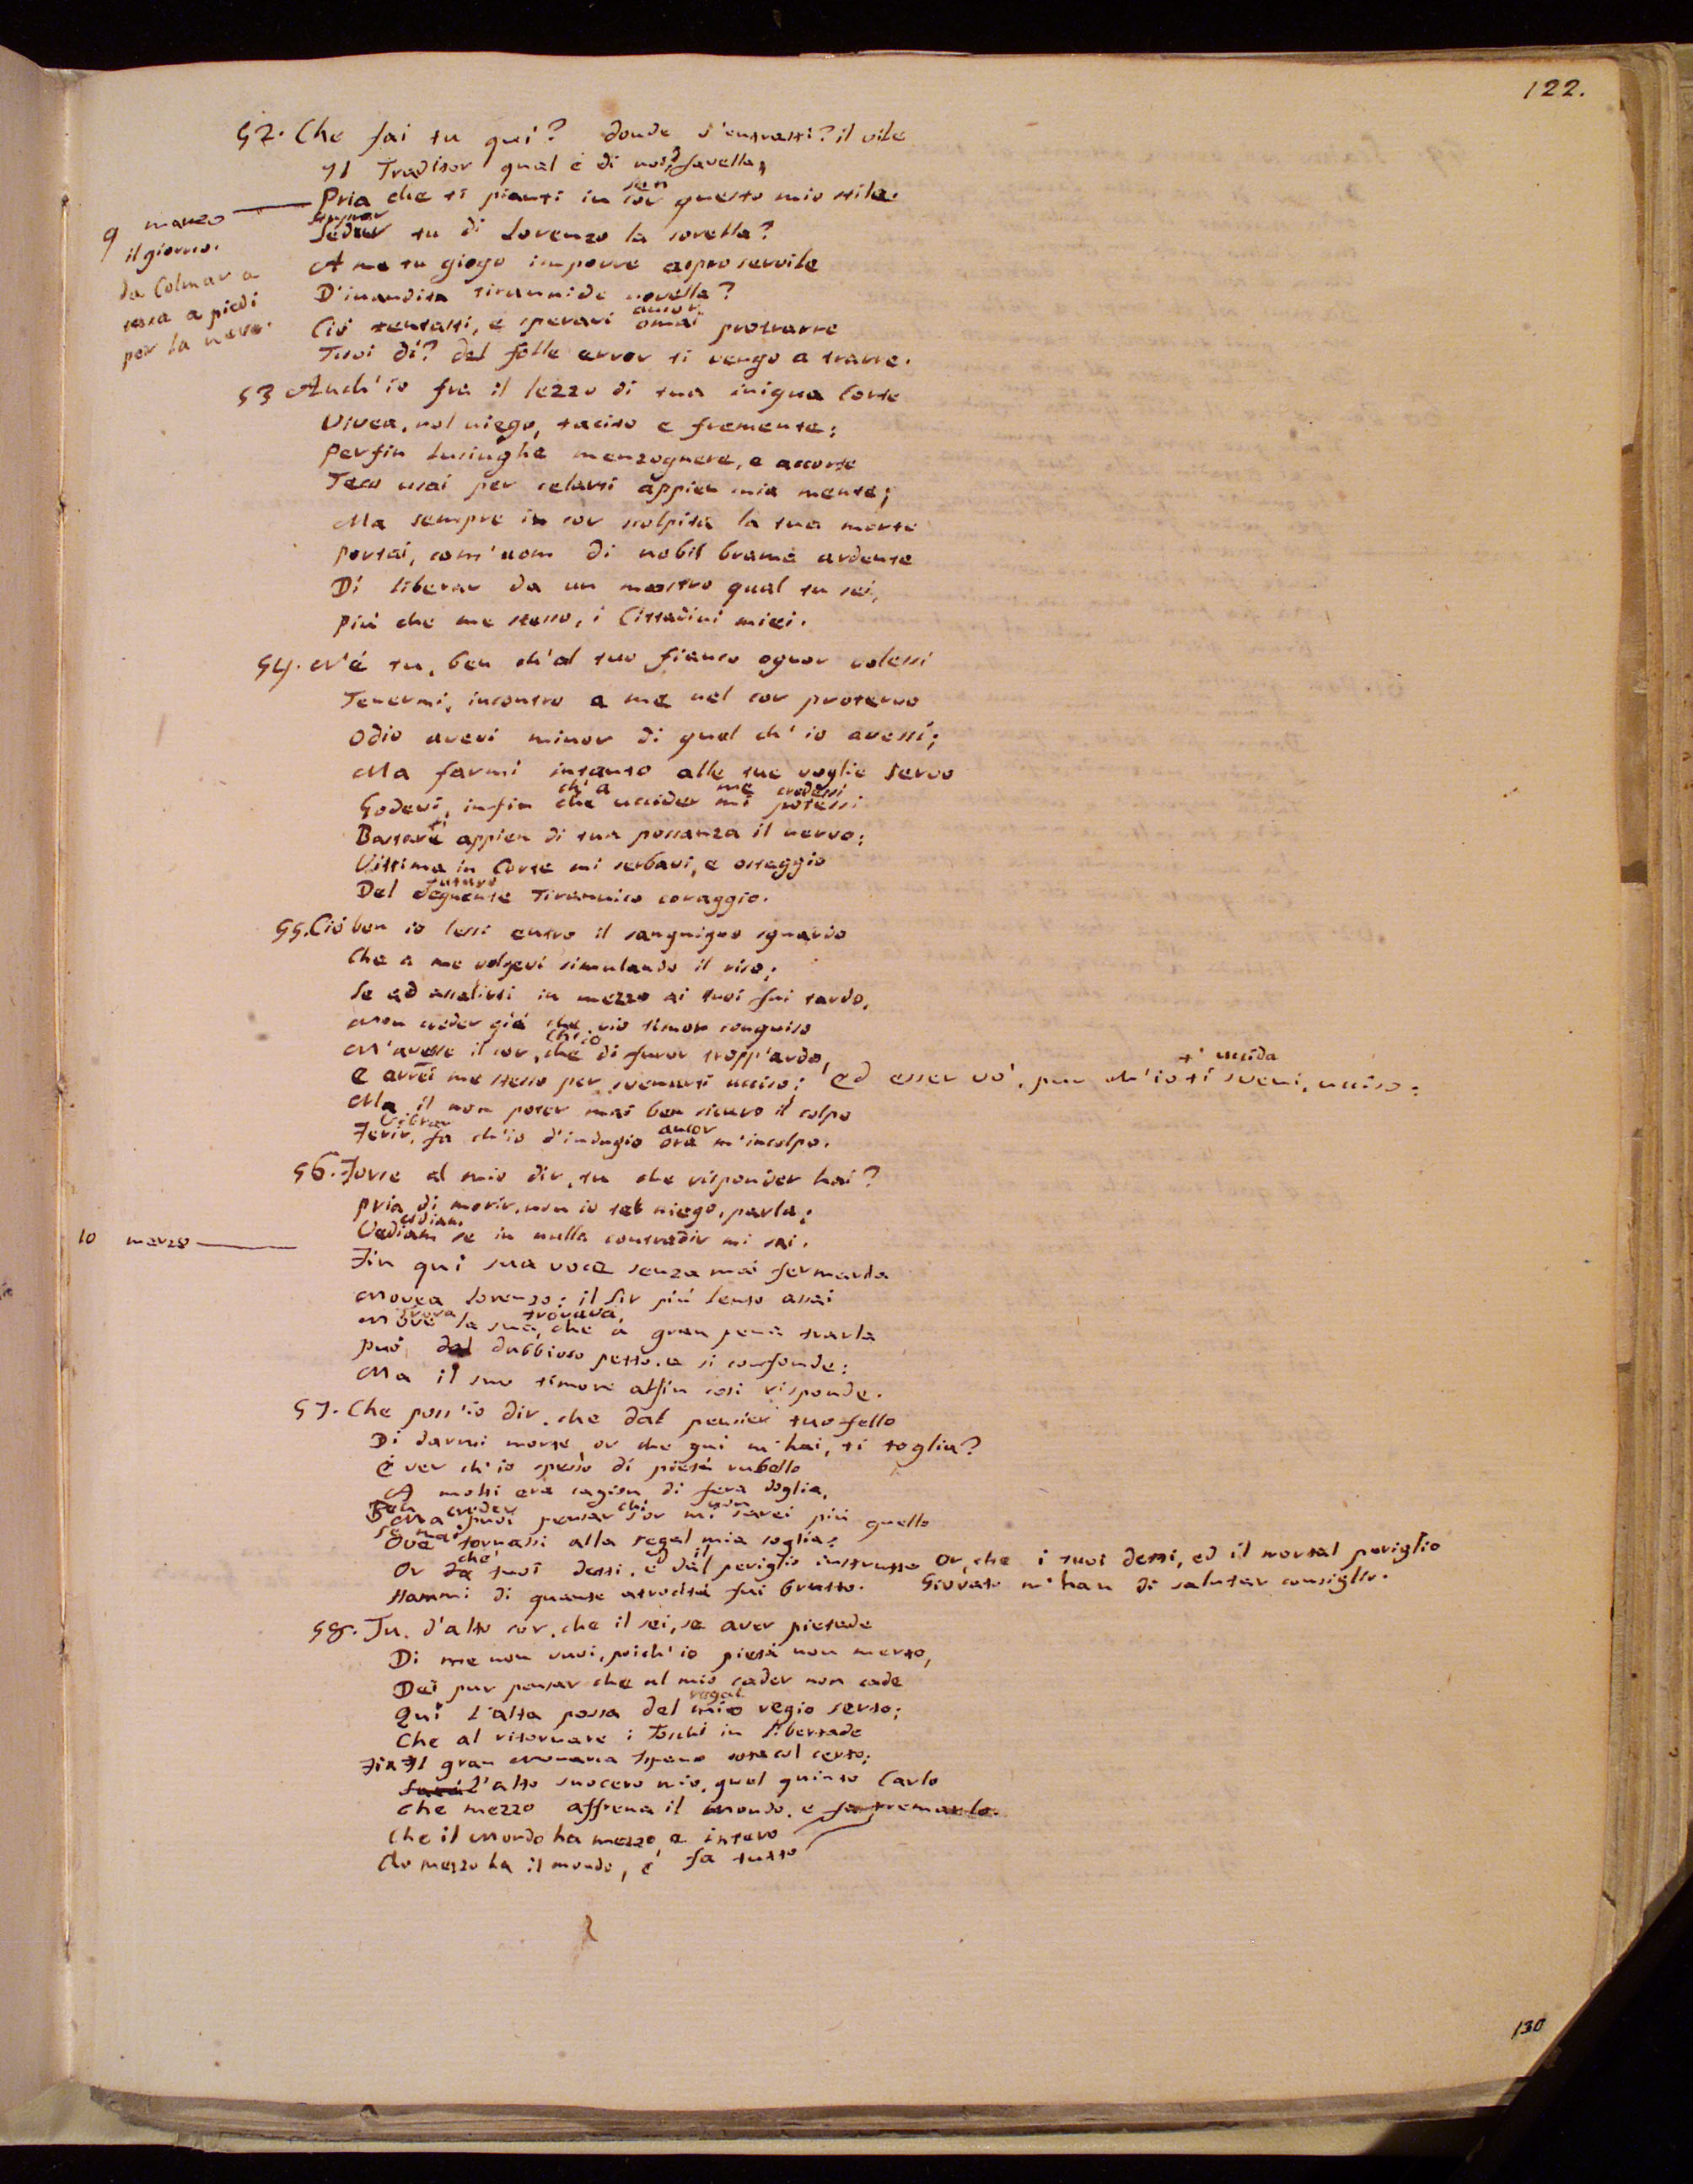 122.
52. Che fai tu qui? donde s'entrasti? il vile
Il Traditor qual è di noi? favella,
sen
Pria che ti pianti in cor questo mio stile.
9 marzo
il giorno.
da Colmar a
casa a piedi
per la neve.
Stuprar
Sedur tu di Lorenzo la sorella?
A me tu giogo imporre aspro servile
D'inaudita tirannide novella?
ancor
Ciò tentasti, e speravi omai protrarre
Tuoi dì? del folle error ti vengo a trarre.
53 Anch'io fra il lezzo di tua iniqua Corte
Vivea, nol niego, tacito e fremente;
Perfin lusinghe menzognere, e accorte
Teco usai per celarti appien mia mente;
Ma sempre in cor scolpita la tua morte
Portai, com'uom di nobil brama ardente
Di liberar da un mostro qual tu sei,
Più che me stesso, i Cittadini miei.
54. Nè tu, ben ch'al tuo fianco ognor volessi
Tenermi, incontro a me nel cor protervo
Odio avevi minor di quel ch'io avessi;
Ma farmi intanto alle tue voglie servo
ch'a me credessi
Godevi, infin che uccider mi potessi
ti
Bastare appien di tua possanza il nervo:
Vittima in Corte mi serbavi, e ostaggio
futuro
Del seguente Tirannico coraggio.
55. Ciò ben io lessi entro il sanguigno sguardo
Che a me volgevi simulando il riso;
Se ad assalirti in mezzo ai tuoi fui tardo,
Non creder già che rio timor conquiso
ch'io
M'avesse il cor, che di furor tropp'ardo,
t'uccida
E avrei me stesso per svenarti ucciso; ed esser vo', pur ch'io ti sveni, ucciso:
Ma il non poter mai ben sicuro il colpo
Vibrar ancor
Ferir, fa ch'io d'indugio ora m'incolpo.
56. Forse al mio dir, tu che risponder hai?
Pria di morir, non io tel niego, parla;
udiam
Vediam se in nulla contradir mi sai.
10 marzo
Fin qui sua voce senza mai fermarla
Movea Lorenzo: il Sir più lento assai
trova trovava,
Move la sua, che a gran pena trarla
Può dal dubbioso petto, e si confonde:
Ma il suo timore alfin così risponde.
57. Che poss'io dir, che dal pensier tuo fello
Di darmi morte, or che qui m'hai, ti toglia?
È ver ch'io spesso di pietà rubello
A molti era cagion di fera doglia,
Ben creder ch'i non
Ma puoi pensar s'or mi sarei più quello
Se mai
Ove tornassi alla regal mia soglia:
che il
Or da tuoi detti, e dal periglio instrutto Or, che i tuoi detti, ed il mortal periglio
Hammi di quante atrocità fui brutto. Giovato m'han di salutar consiglio.
58. Tu, d'alto cor, che il sei, se aver pietade
Di me non vuoi, poich'io pietà non merto,
Dei pur pensar che al mio cader non cade
regal
Qui l'alta possa del mio regio serto;
Che al ritornare i Toschi in libertade
Fia Il gran Monarca Ispano certo;
Sarà l'alto suocero mio, quel quinto Carlo
Che mezzo affrena il Mondo, e fa tremarlo.
Che il Mondo ha mezzo, e intero
Che mezzo ha il mondo, e fa tutto
130